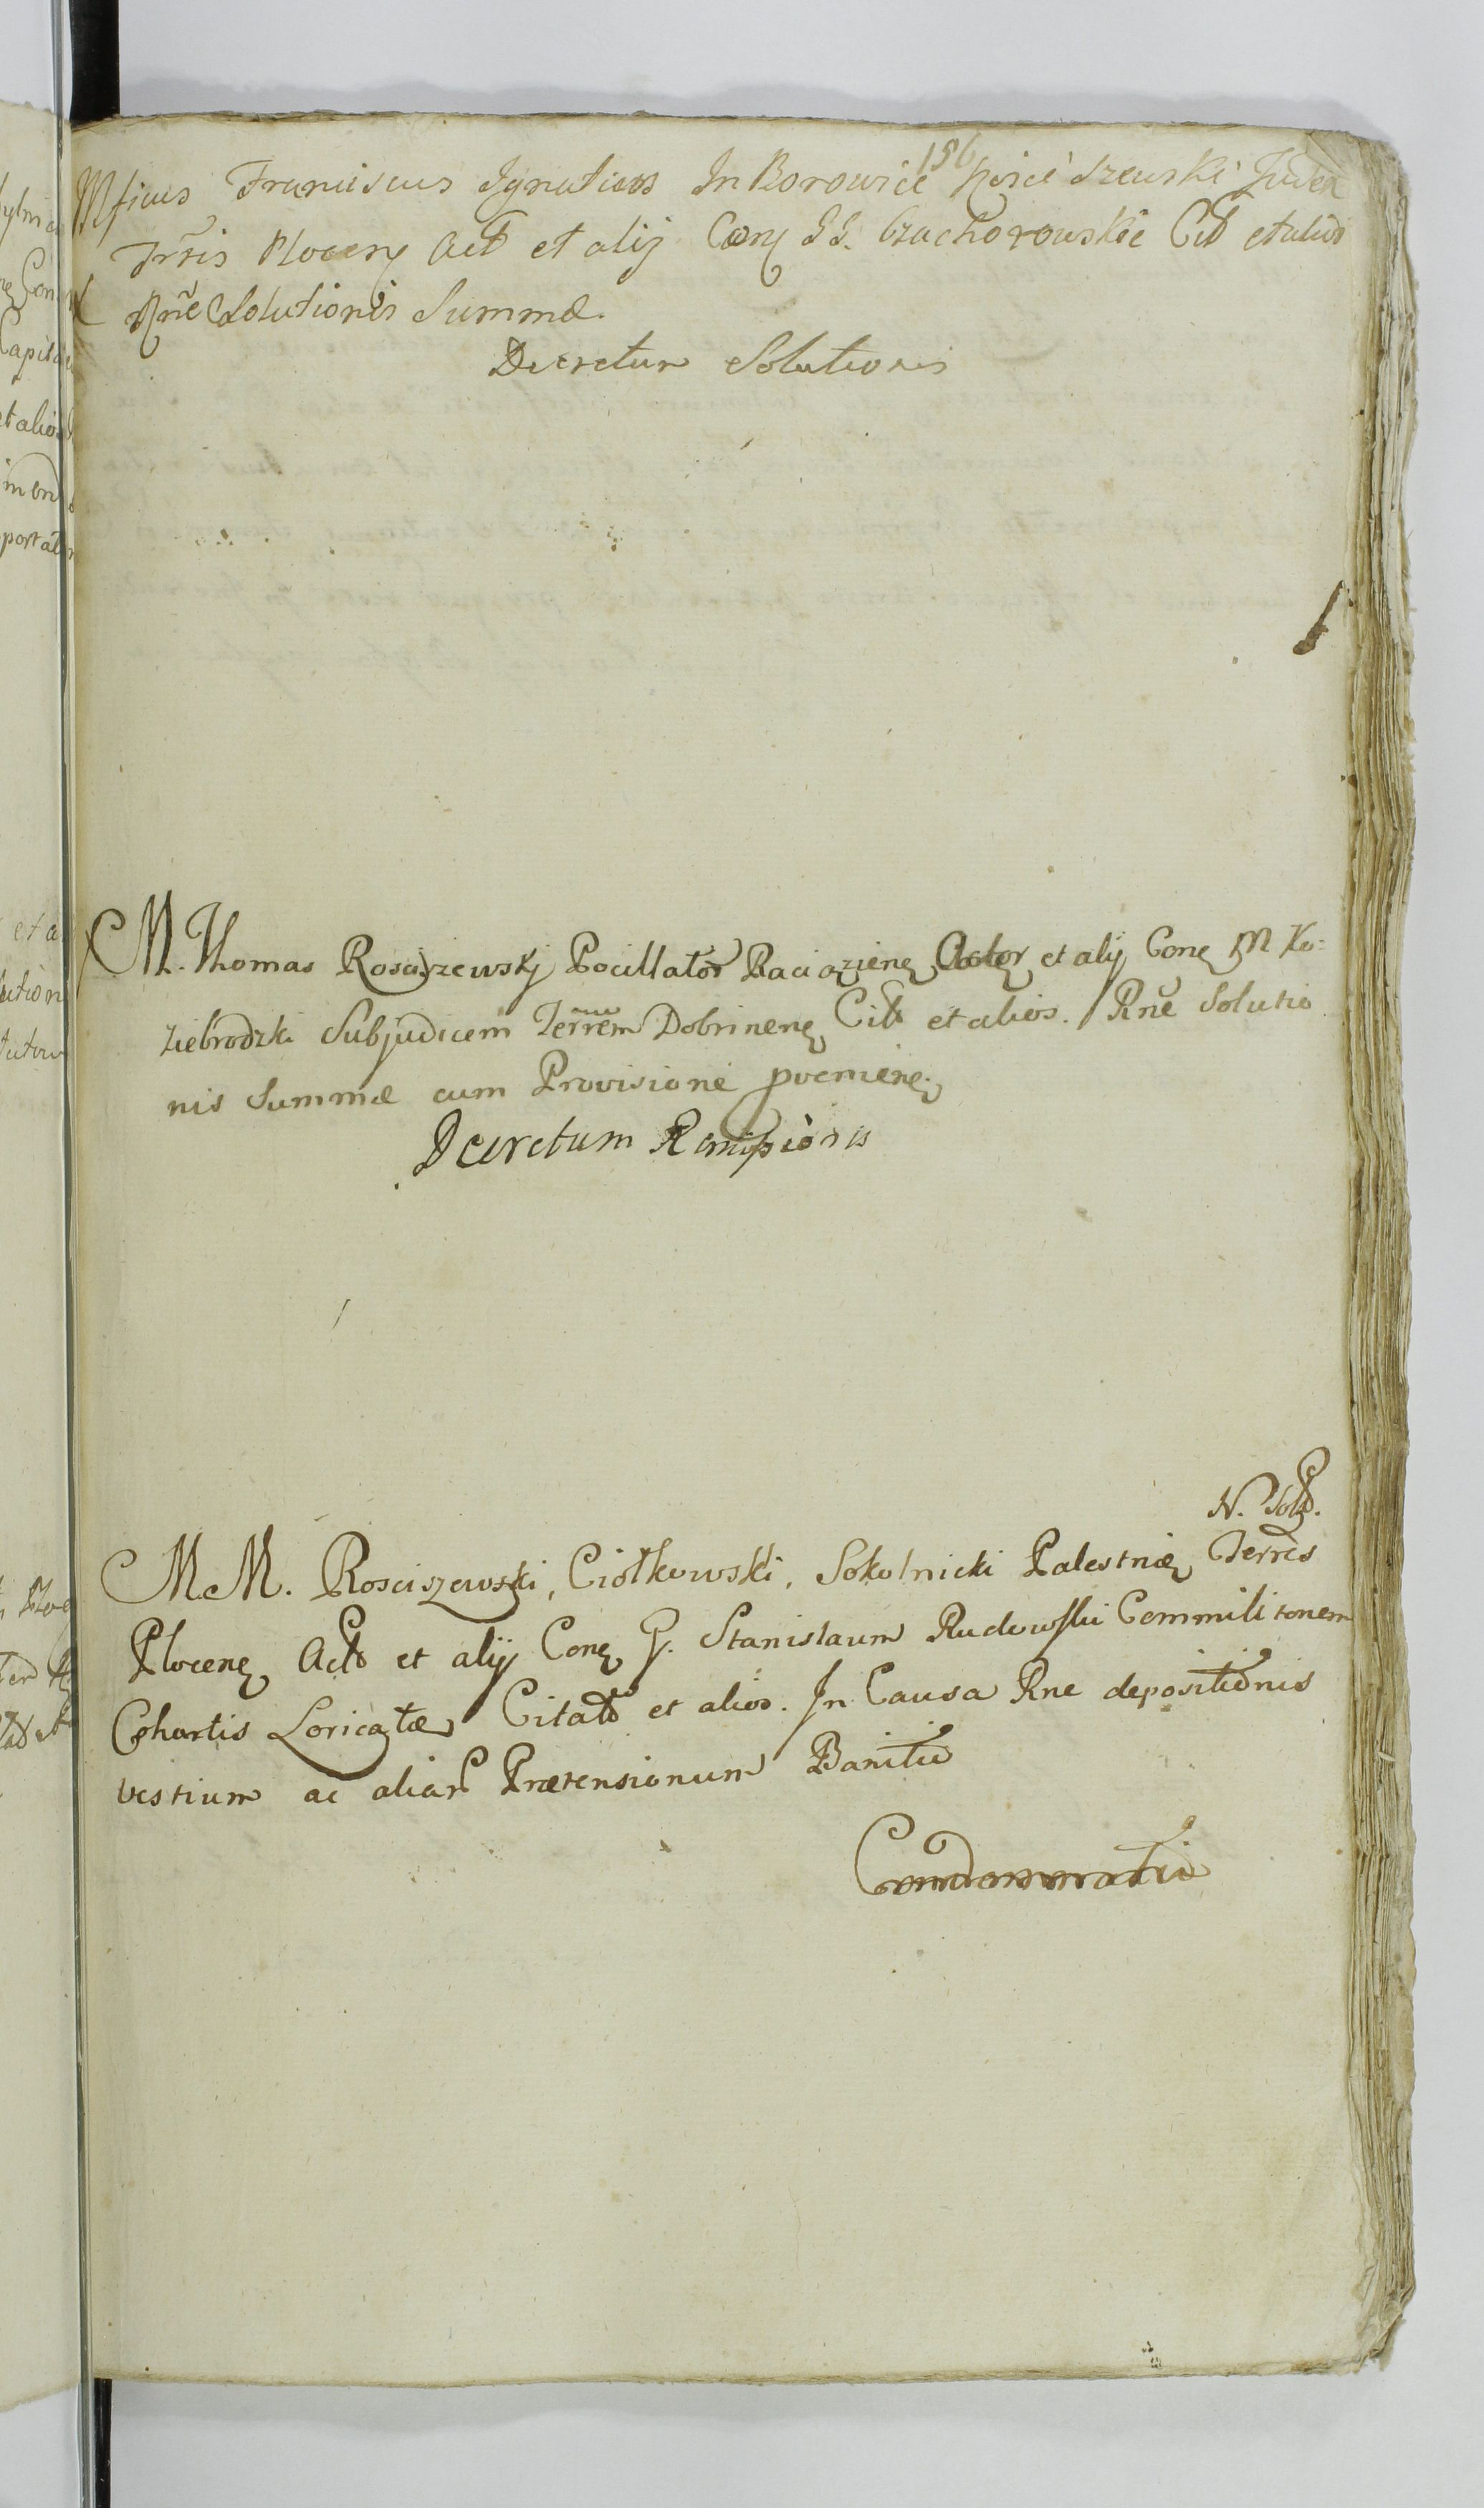 156
Mficus Franciscus Ignatius In Borowice Rosciszewski Judex
Trr̃is Plocen̄ Act et alij Con̄ GG. Czachorowskie Cit et alios
Rñe Solutionis Summæ.
Decretum Solutionis
M. Thomas Rosciszewskj Pocillator Raciązienę Actor et alij Conę M Ko=
ziebrodzki Subjudicem Terr̃em Dobrinenę Cit et alios. Rñe Solutio
nis Summæ cum Provisione
Decretum Remissionis
N. Sol.
M.M. Rosciszewski, Ciołkowski, Sokolnicki Palestræ Terr̃is
Plocenę Act et alij Conę G. Stanislaum Rudowski Commilitonem
Cohortis Loricatæ Citat et alios. In Causa Rne depositionis
vestium ac aliar Prætensionum Banitio
Condemnatio